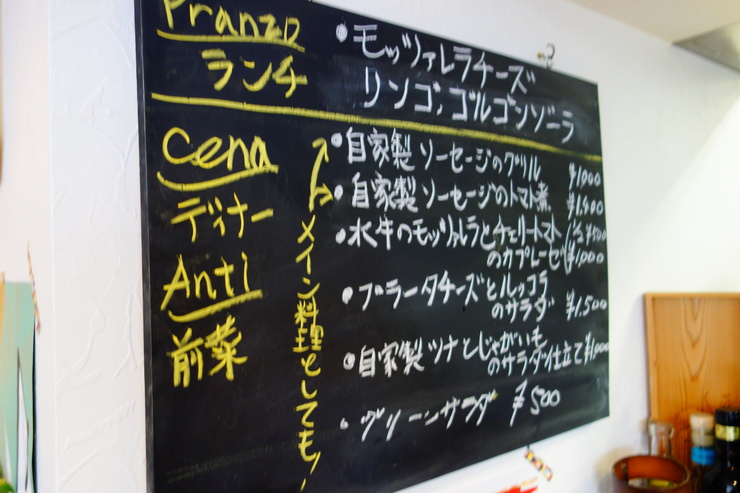 Pranzo
ランチ
・モッツァレラチーズ
リンゴ,ゴルゴンゾーラ
Cena
ディナー
Anti
前菜
メイン料理としても!
・自家製ソーセージのグリル ¥1,000
・自家製ソーセージのトマト煮 ¥1,400
・水牛のモッツァレラとチェリートマト
のカプレーゼ ½ ¥500
¥1,000
・ブラータチーズとルッコラ
のサラダ ¥1,500
・自家製ツナとじゃがいも
のサラダ仕立て ¥1,000
・グリーンサラダ ¥500